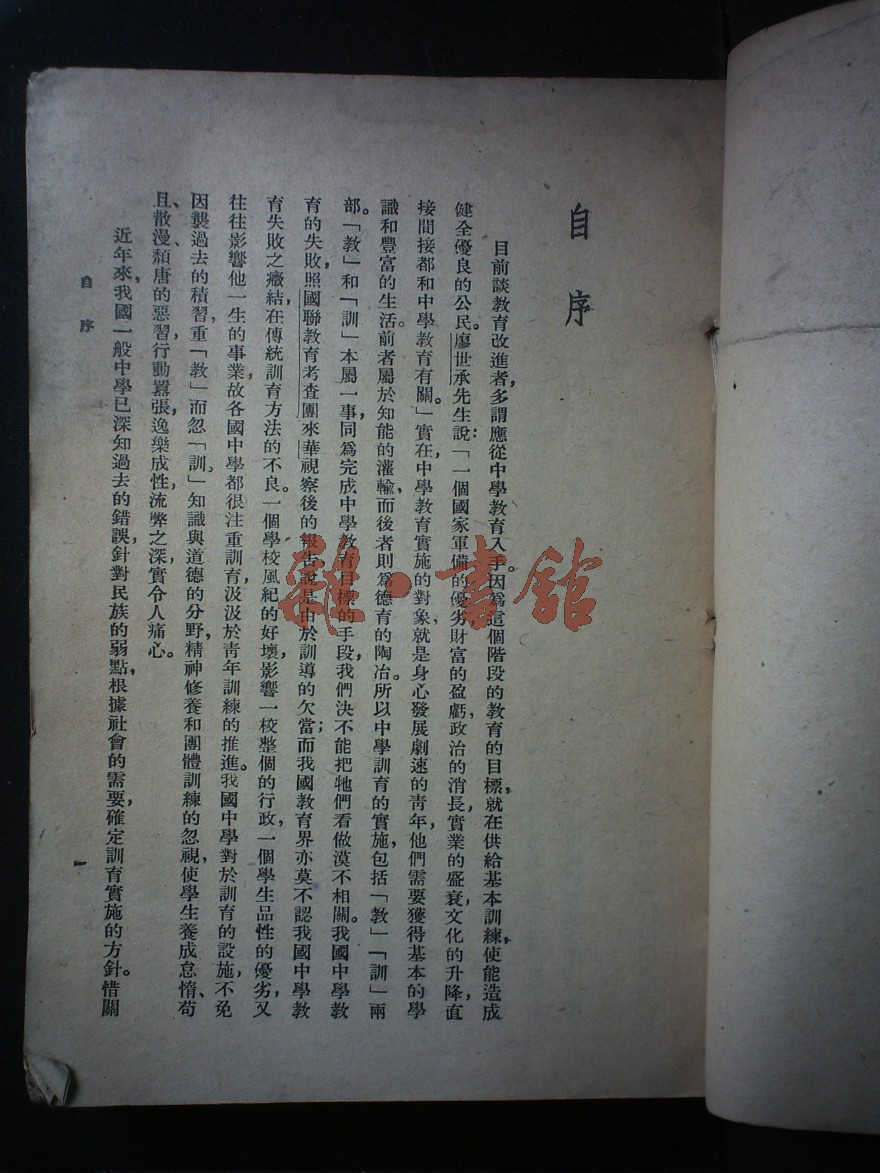 自序
目前談教育改進者，多謂應從中學教育入手。因爲這個階段的教育的目標，就在供給基本訓練，使能造成
健全優良的公民。廖世承先生說：「一個國家軍備的優劣，財富的盈虧，政治的消長，實業的盛衰，文化的升降，直
接間接都和中學教育有關。」實在，中學教育實施的對象，就是身心發展劇速的青年，他們需要獲得基本的學
識和豐富的生活。前者屬於知能的灌輸，而後者則爲德育的陶冶。所以中學訓育的實施，包括「教」「訓」兩
部。「教」和「訓」本屬一事，同爲完成中學教育目標的手段，我們決不能把牠們看做漠不相關。我國中學教
育的失敗，照國聯教育考查團來華視察後的報告說，是由於訓導的欠當；而我國教育界亦莫不認我國中學教
育失敗之癥結，在傳統訓育方法的不良。一個學校風紀的好壞，影響一校整個的行政，一個學生品性的優劣，又
往往影響他一生的事業，故各國中學都很注重訓育，汲汲於青年訓練的推進。我國中學對於訓育的設施，不免
因襲過去的積習，重「教」而忽「訓」，知識與道德的分野，精神修養和團體訓練的忽視，使學生養成怠惰、苟
且、散漫、頹唐的惡習，行動囂張，逸樂成性，流弊之深，實令人痛心。
近年來，我國一般中學已深知過去的錯誤，針對民族的弱點，根據社會的需要，確定訓育實施的方針。惜關
自序
一
雜·書館